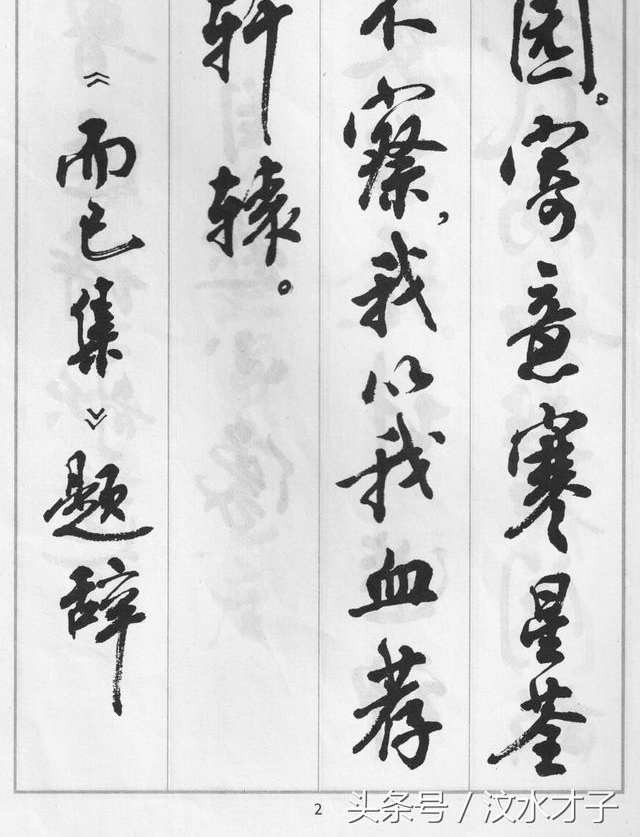 园。寄意寒星荃
不察，我以我血荐
轩辕。
《而已集》题辞
2
头条号／汶水才子